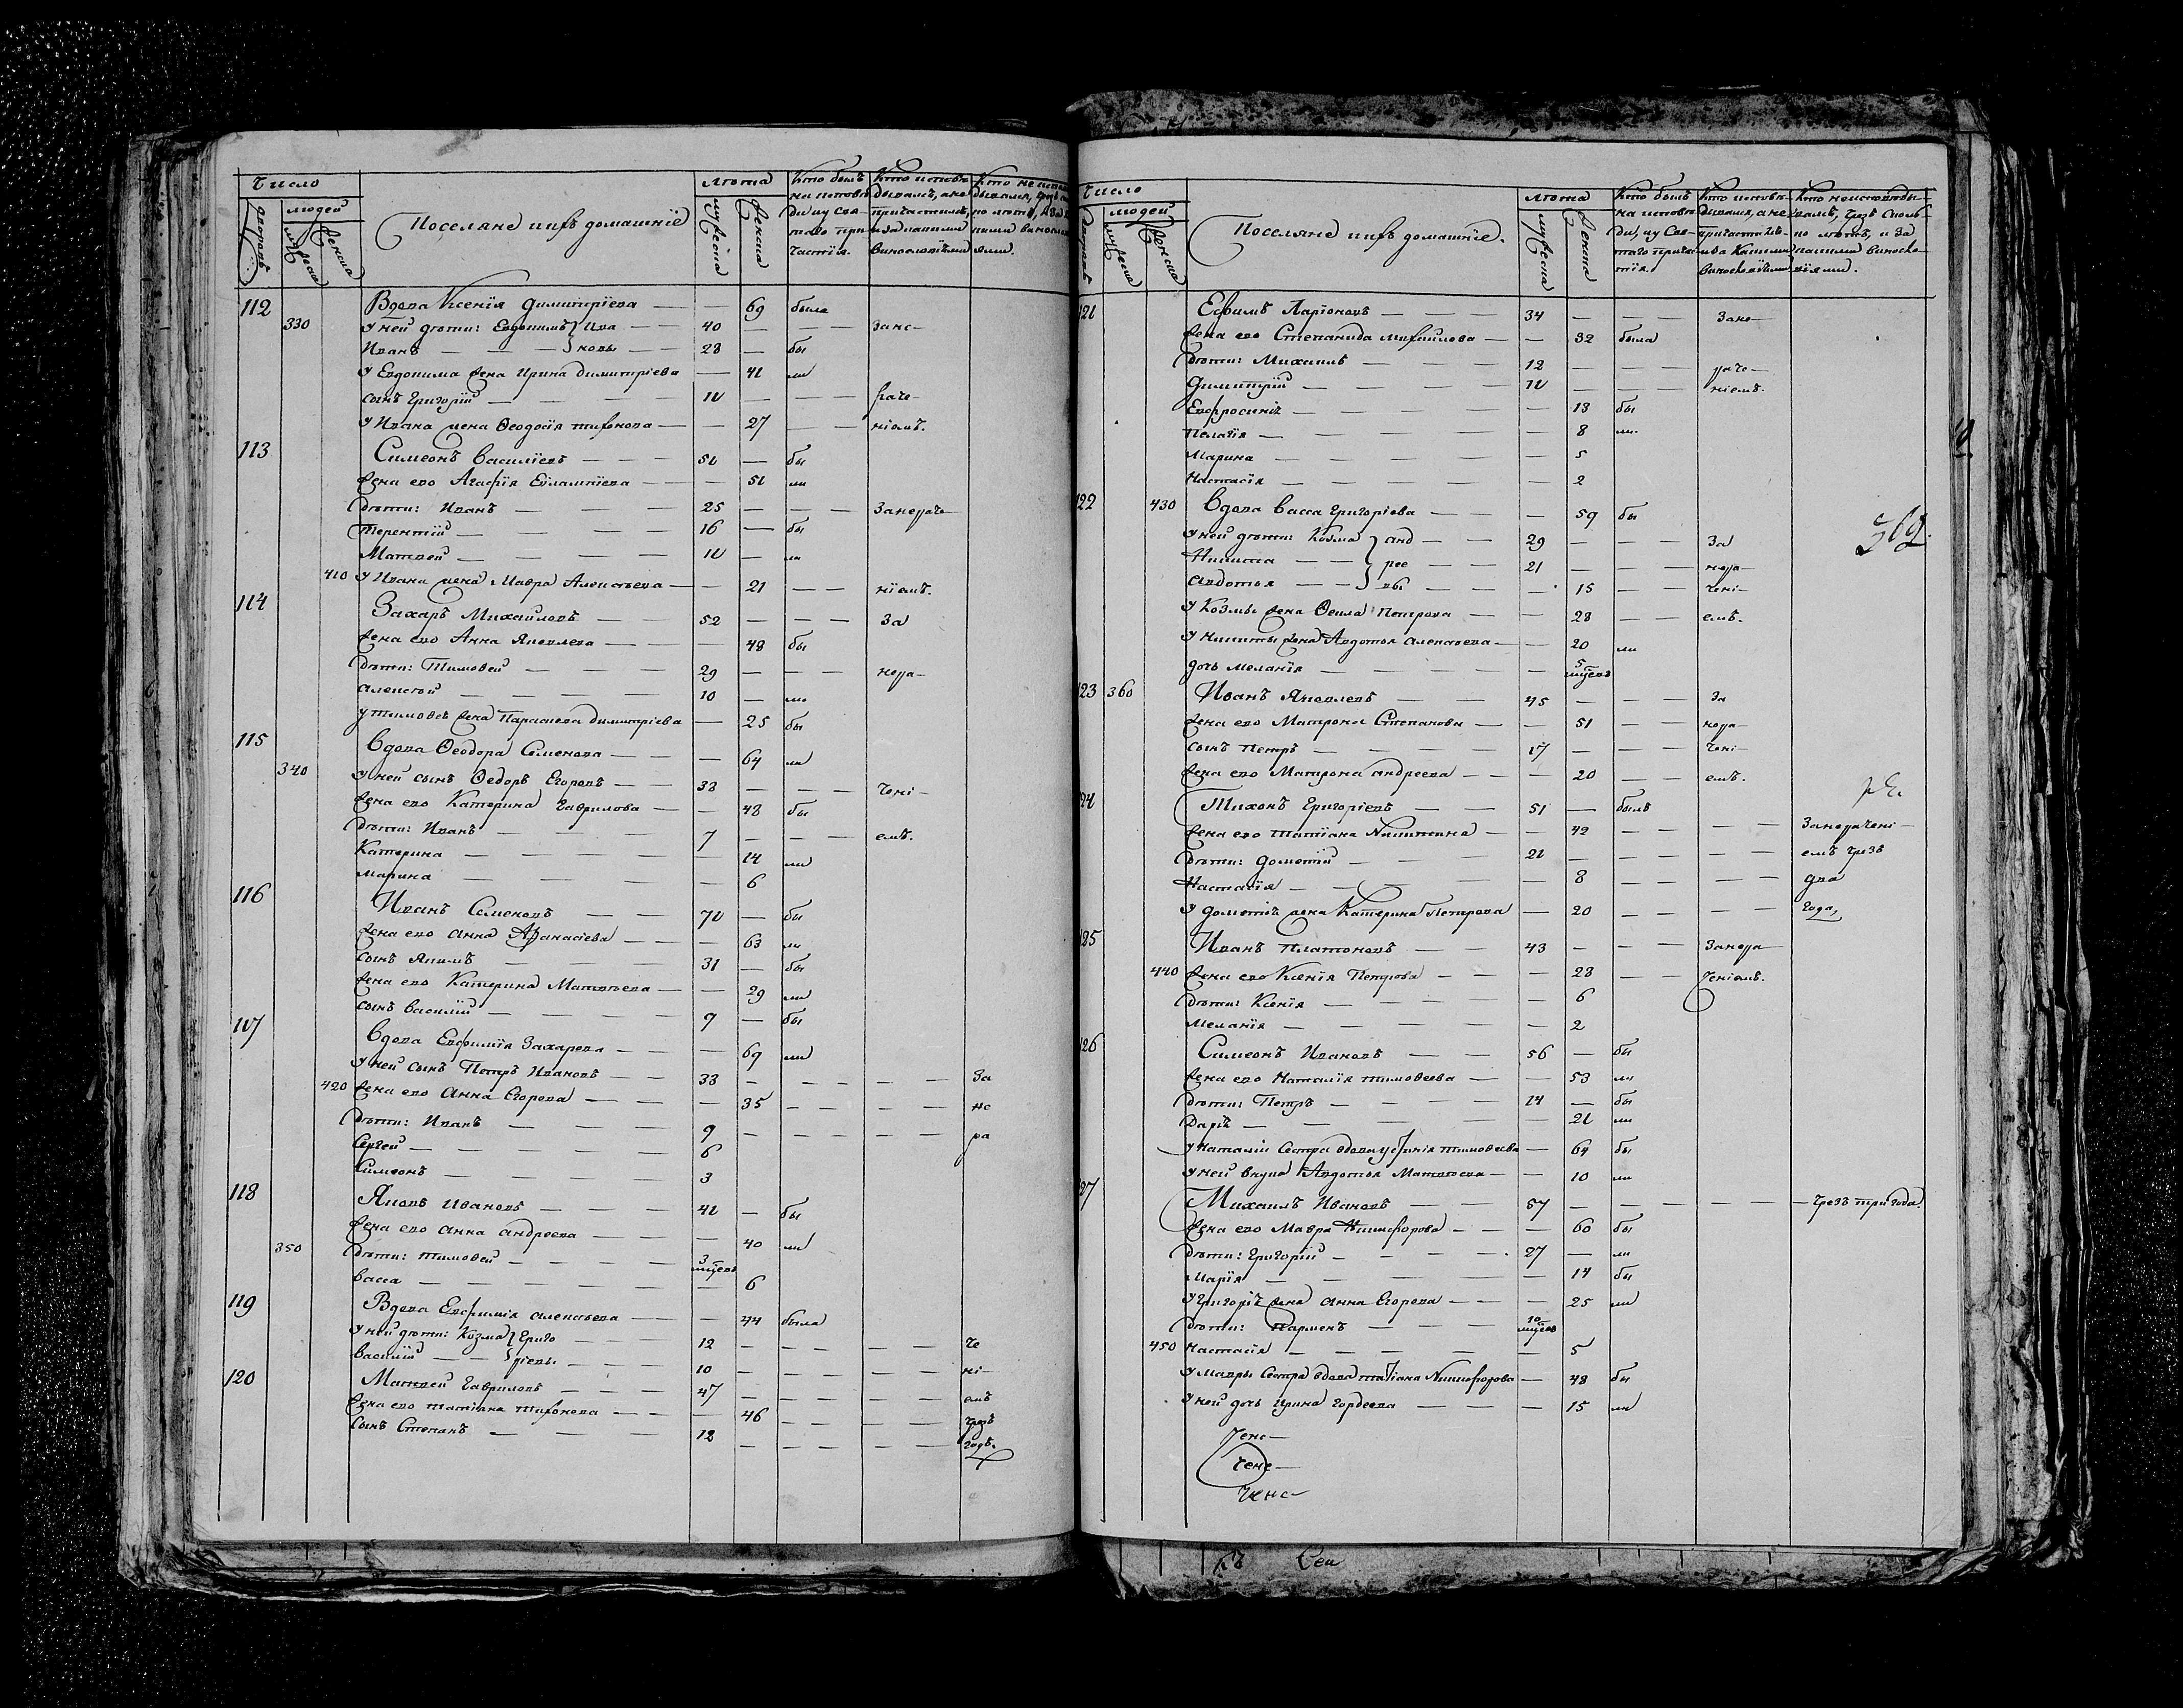 Число
людей
дворовъ
мужеска
женска
Поселяне и ихъ домашніе
Лѣта
мужеска
женска
Кто былъ
на исповѣ
ди и у Свя-
таго при-
частія.
Кто исповѣ
дывался, а не
причастился,
и за какими
винословіями
112 Вдова Ксенія Димитріева — — 69 была
330 У ней дѣти: Евдокимъ } Ива — — 40 — — — Зане-
Иванъ — — — } новы — — 28 — бы
У Евдокима жена Ирина Димитріева — 41 ли
сынъ Григорій — — — — 10 — — — раче-
У Ивана жена Ѳеодосія Тихонова — — 27 — — ніемъ.
113 Симеонъ Василіевъ — — — 51 — бы
жена его Агафія Евлампіева — — 51 ли
дѣти: Иванъ — — — 25 — — — Занераче-
Терентій — — — — 16 — бы
Матвей — — — — 10 — ли
410 У Ивана жена Мавра Алексѣева — — 21 — — ніемъ.
114 Захаръ Михайловъ — — 52 — — — За
жена его Анна Яковлева — — — 48 бы
дѣти: Тимовей — — — — 29 — — — нера-
Алексѣй — — — — 10 — ли
у Тимовея жена Параскева Димитріева — 25 бы
115 Вдова Ѳеодора Семенова — — — 64 ли
340 У ней сынъ Ѳедоръ Егоровъ — — 38 — — — чені-
жена его Катерина Гаврилова — — 48 бы
дѣти: Иванъ — — — — 7 — — — емъ.
Катерина — — — — — 14 ли
Марина — — — — — 6
116 Иванъ Семеновъ — — 70 — бы
жена его Анна Афанасіева — — — 63 ли
сынъ Якимъ — — — 31 — бы
жена его Катерина Матвѣева — — 29 ли
сынъ Василій — — — — 9 — бы
117 Вдова Евфимія Захарова — — — 69 ли
У ней сынъ Петръ Ивановъ — — 33 — — — — — За
420 жена его Анна Егорова — — — 35 — — — — не
дѣти: Иванъ — — — 9 — — — — — ра
Сергей — — — — — 6
Симеонъ — — — — 3
118 Яковъ Ивановъ — — — 41 — бы
жена его Анна Андреева — — — 40 ли
350 дѣти: Тимовей — — — — 3 мцевъ
Васса — — — — — 6
119 Вдова Евфимія Алексѣева — — — 44 была
У ней дѣти: Козма } Григо — — 12 — — — — — че
Василій — — } ріевы — — 10 — — — — — ні-
120 Матвей Гавриловъ — — — 47 — — — — — емъ
жена его Татіана Тихонова — — — 46 — — — — чрезъ
Сынъ Степанъ — — — 12 — — — — — годъ.
Число
людей
мужеска
женска
Поселяне и ихъ домашніе.
Лѣта
мужеска
женска
Кто былъ
на исповѣ
ди, и у Свя-
таго прича-
тія.
121 Ефимъ Ларіоновъ — — — 34 — — — Зане-
жена его Степанида Михайлова — — 32 была
дѣти: Михаилъ — — — 12 — — — раче-
Димитрій — — — — 10 — — — ніемъ.
Евфросинія — — — — — 13 бы
Пелагія — — — — — 8 ли.
Марина — — — — — 5
Настасія — — — — — 2
122 430 Вдова Васса Григоріева — — — 59 бы
У ней дѣти: Козма } анд — — 29 — — — За
Никита — — } рее — — 21 — — — нера-
Авдотья — — } вы — — — 15 — — чені-
У Козмы жена Ѳекла Петрова — — 28 — — емъ.
У Никиты жена Авдотья Алексѣева — — 20 ли
дочь Меланія — — — — — 5 мцевъ
123 360 Иванъ Яковлевъ — — — 45 — — — За
жена его Матрона Степанова — — 51 — — нера-
сынъ Петръ — — — — 17 — — — чені-
жена его Матрона Андреева — — — 20 — — емъ.
124 Тихонъ Григоріевъ — — 51 — былъ
жена его Татіана Никитина — — 42 — — — — Занерачені-
дѣти: Дометій — — — 21 — — — — — емъ чрезъ
Настасія — — — — — 8 — — — — два
У Дометія жена Катерина Петрова — 20 — — — — года,
125 Иванъ Платоновъ — — 43 — — — Занера
440 жена его Ксенія Петрова — — — — 28 — — ченіемъ.
дѣти: Ксенія — — — — — 6
Меланія — — — — — 2
126 Симеонъ Ивановъ — — 56 — бы
жена его Наталія Тимовеева — — 53 ли
дѣти: Петръ — — — — 14 — бы
Дарія — — — — — 21 ли
У Наталіи Сестра вдова Устинія Тимовеева — 64 бы
У ней внука Авдотья Матвѣева — — 10 ли
127 Михаилъ Ивановъ — — 57 — — — — — чрезъ три года.
жена его Мавра Никифорова — — — 60 бы
дѣти: Григорій — — — — 27 — ли
Марія — — — — — 14 бы
У Григорія жена Анна Егорова — — — 25 ли
дѣти: Парменъ — — — 10 мцевъ
450 Настасія — — — — — 5
У Мавры Сестра вдова Татіана Никифорова — 48 бы
У ней дочь Ирина Гордеева — — — 15 ли
Ченс-
Ченс-
Ченс-
569.